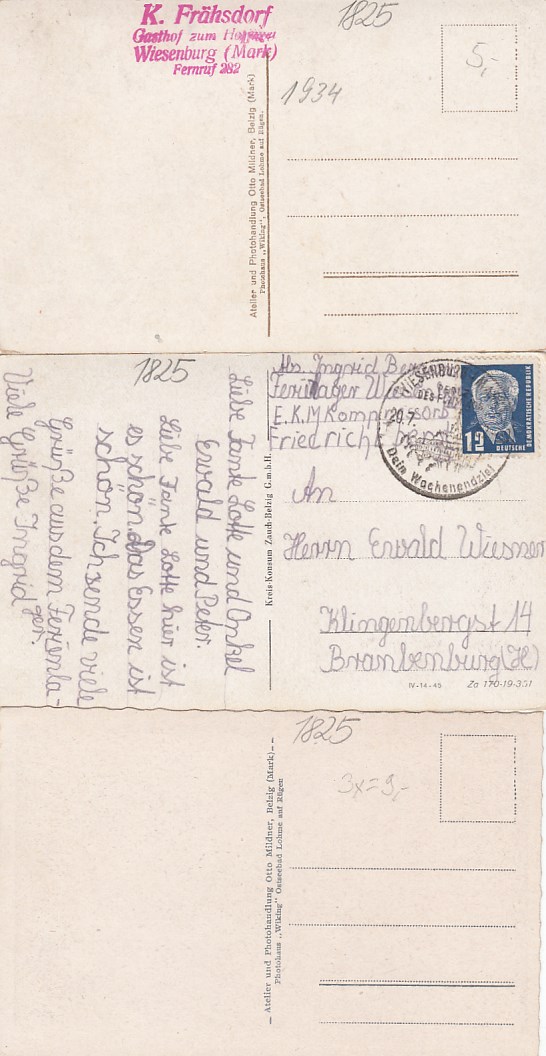 K. Frähsdorf
Gasthof zum
Wiesenburg (Mark)
Fernruf 282
1825
5,-
1934
Atelier und Photohandlung Otto Mildner, Belzig (Mark)
Photohaus „Wiking“ Ostseebad Lohme auf Rügen.
1825
Liebe Tante Lotte und Onkel
Ewald und Peter.
Liebe Tante Lotte hier ist
es schön. Das Essen ist
schön. Ich sende viele
Grüße aus dem Ferienla-
ger.
Viele Grüße Ingrid
Kreis-Konsum Zauch-Belzig G.m.b.H.
Abs. Ingrid
Ferienlager
E.K.M
Friedrich
WIESENBURG
DES
20.7.
Dein Wochenendziel
12
DEUTSCHE
DEMOKRATISCHE REPUBLIK
An
Herrn Ewald Wiesner
Klingenbergst 14
Brandenburg (H)
IV-14-45 Za 170-19-351
1825
3x=9,-
Atelier und Photohandlung Otto Mildner, Belzig (Mark)
Photohaus „Wiking“ Ostseebad Lohme auf Rügen